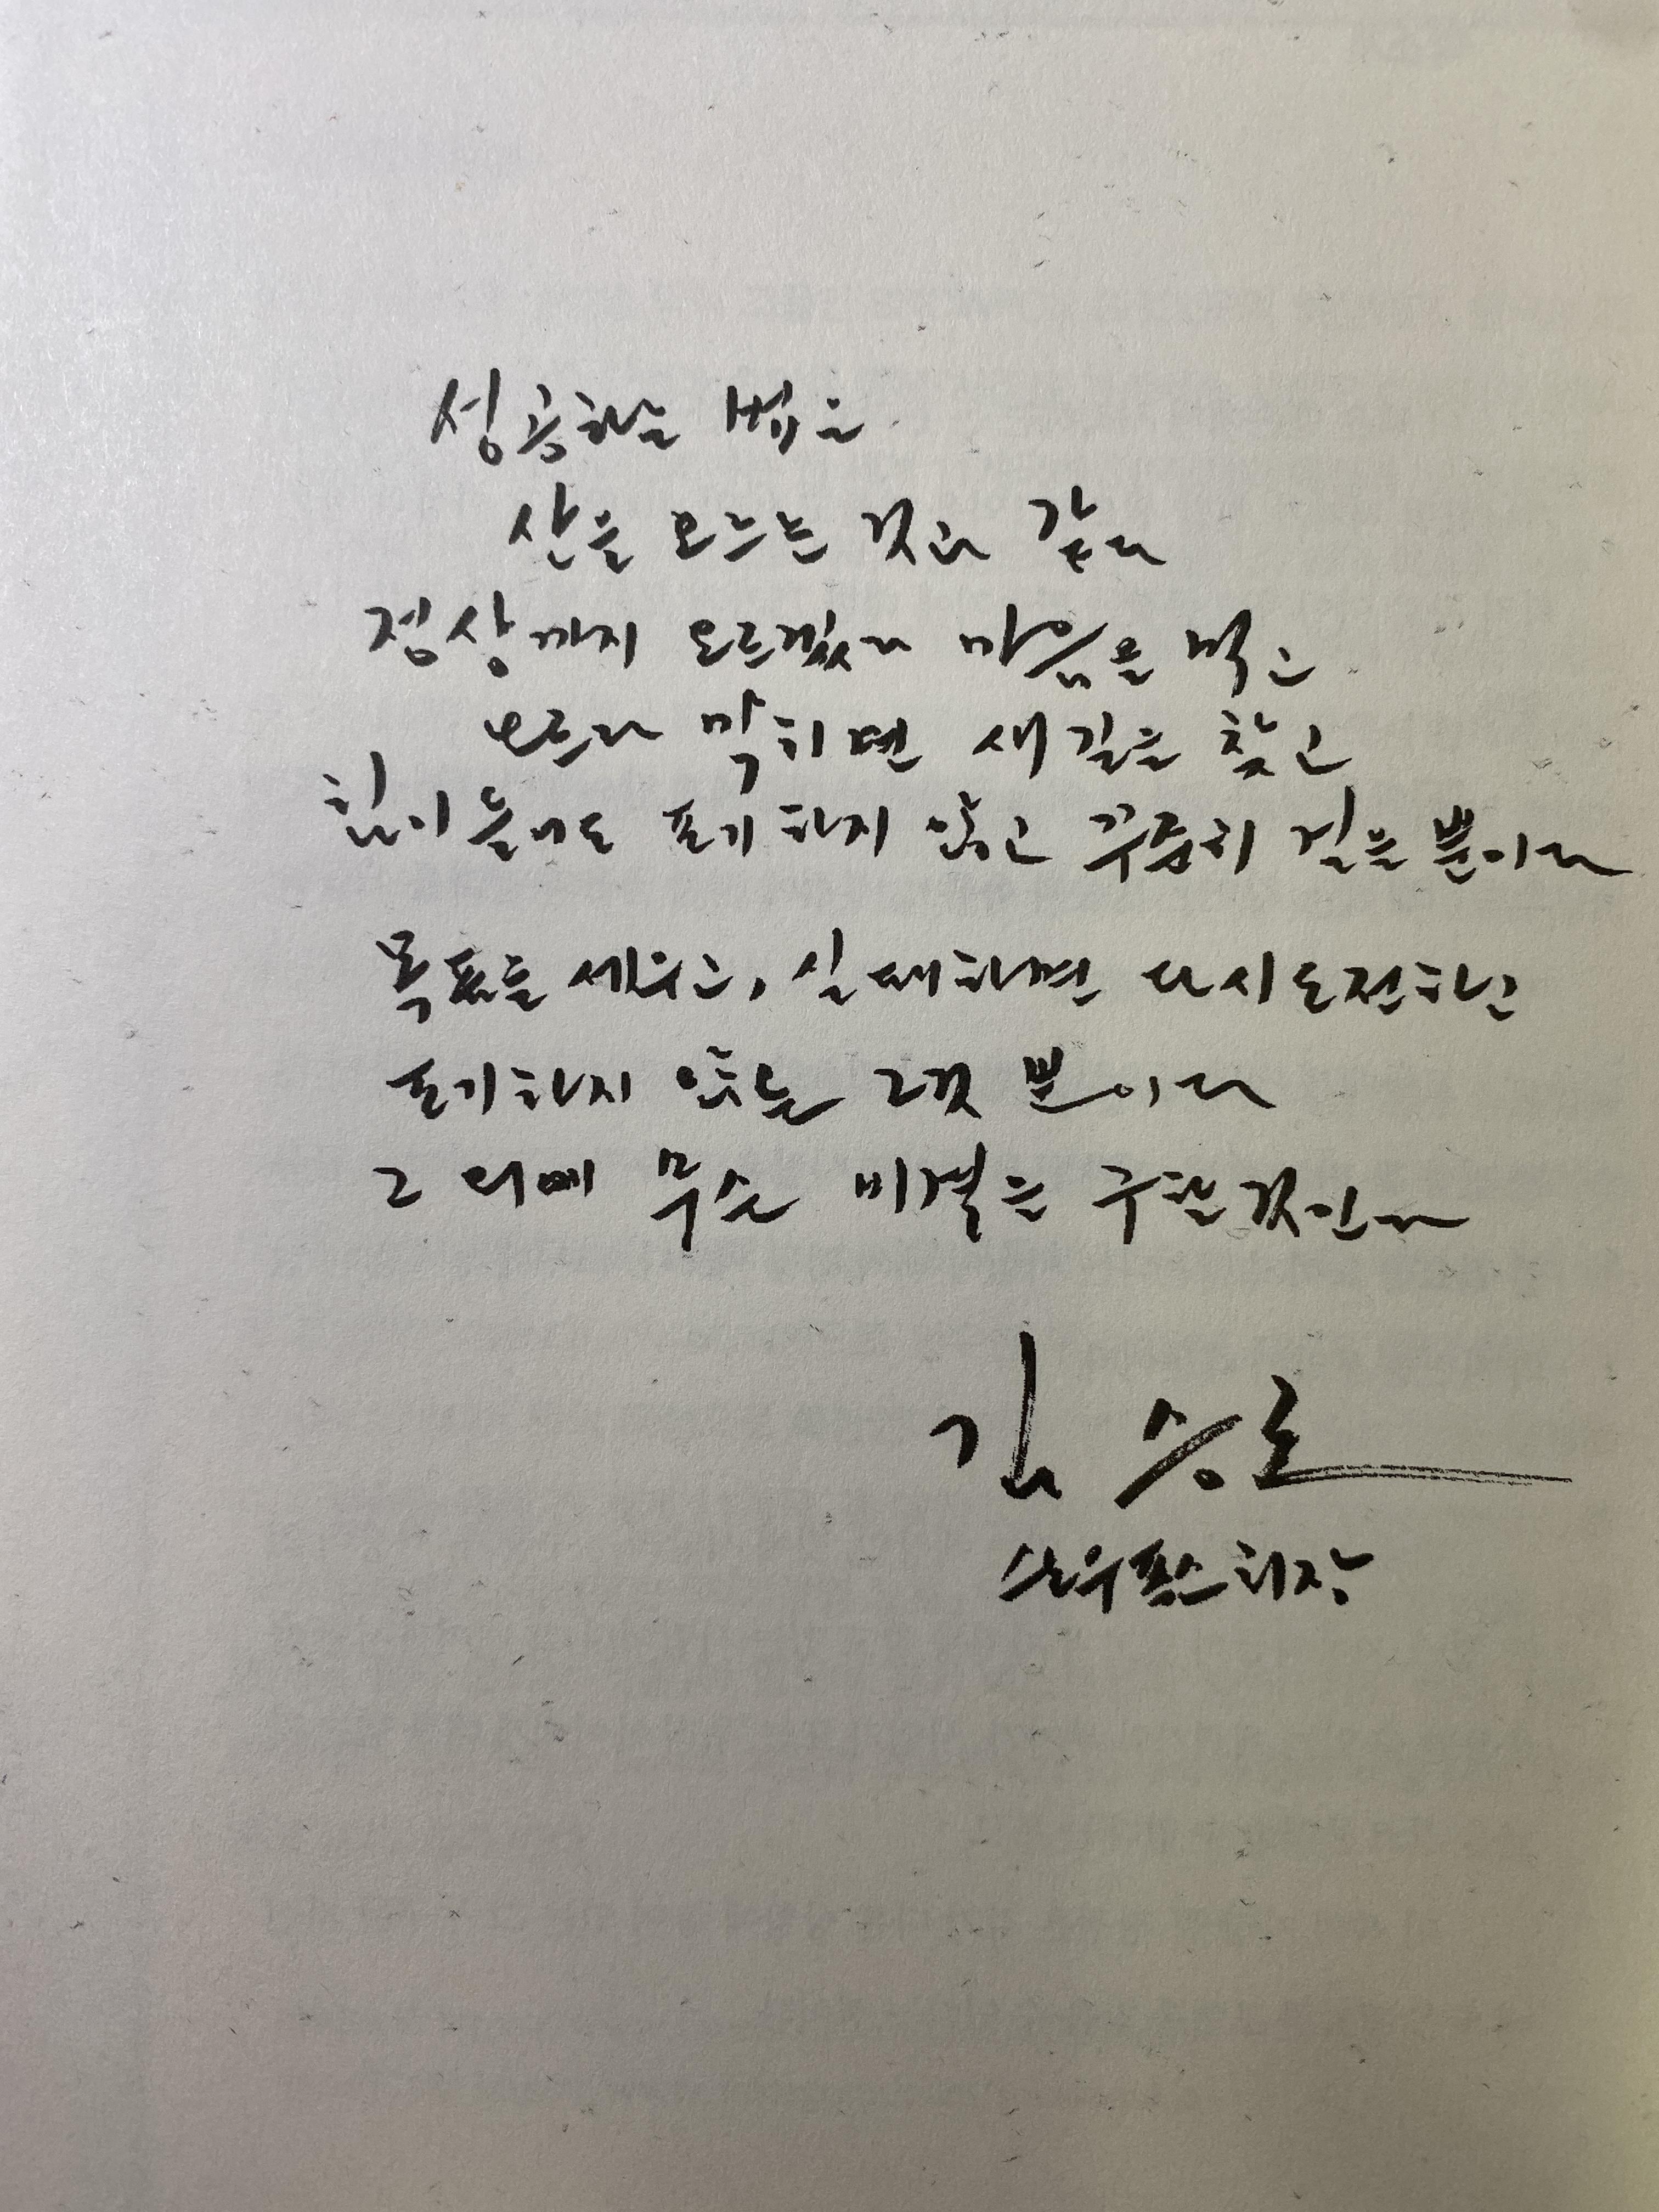 성공하는 법은
산을 오르는 것과 같다
정상까지 오르겠다 마음을 먹고
오르다 막히면 새길을 찾고
힘이 들어도 포기하지 않고 꾸준히 걸을 뿐이다
목표를 세우고, 실패하면 다시 도전하고
포기하지 않는 그것 뿐이다
그 외에 무슨 비결을 구할 것인가
김승호
스노우폭스 회장